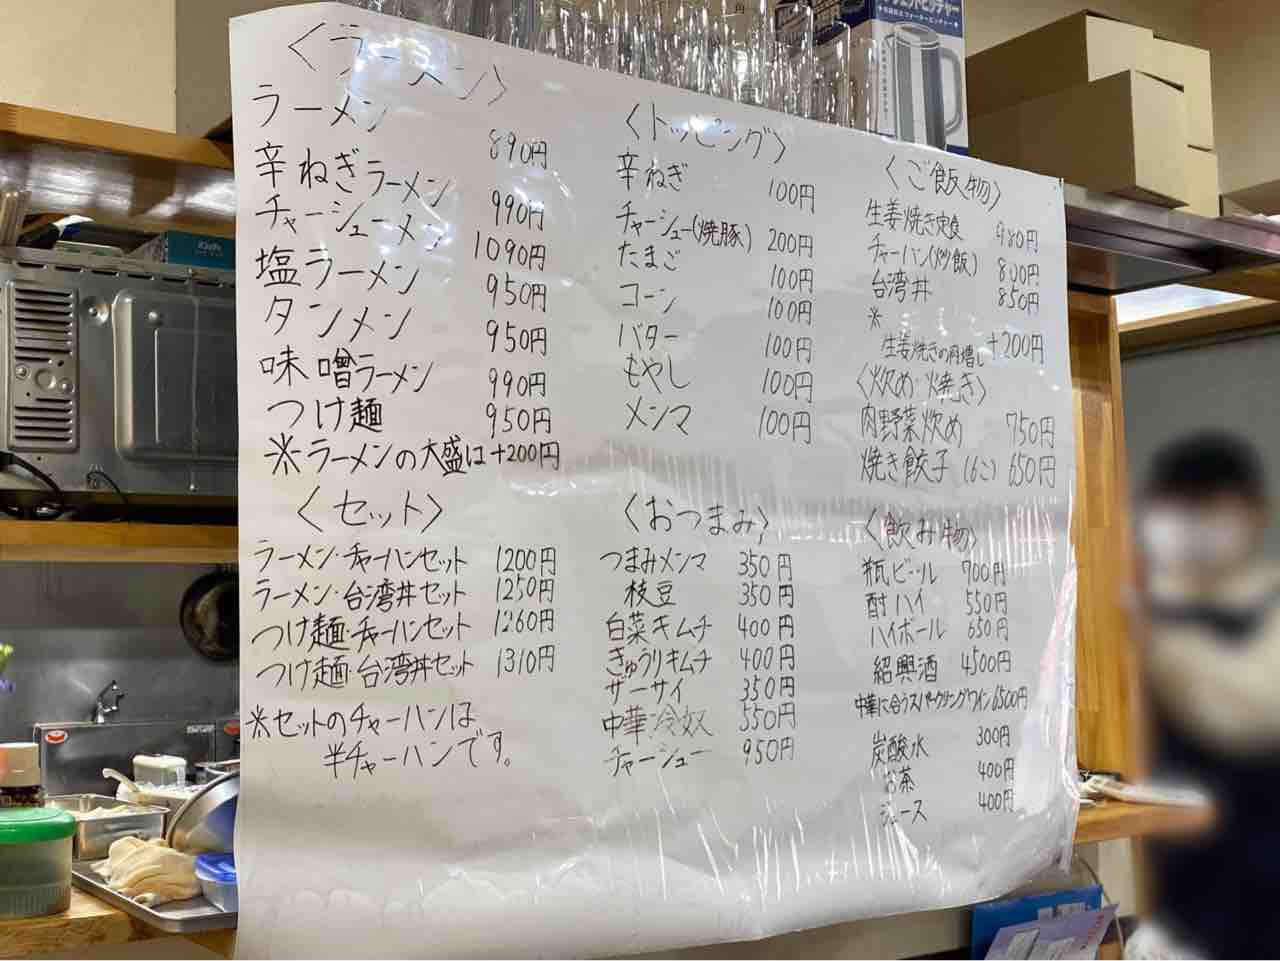 〈ラーメン〉
ラーメン 890円
辛ねぎラーメン 990円
チャーシューメン 1090円
塩ラーメン 950円
タンメン 950円
味噌ラーメン 990円
つけ麺 950円
※ラーメンの大盛は+200円
〈セット〉
ラーメン・チャーハンセット 1200円
ラーメン・台湾丼セット 1250円
つけ麺・チャーハンセット 1260円
つけ麺・台湾丼セット 1310円
※セットのチャーハンは
半チャーハンです。
〈トッピング〉
辛ねぎ 100円
チャーシュー(焼豚) 200円
たまご 100円
コーン 100円
バター 100円
もやし 100円
メンマ 100円
〈おつまみ〉
つまみメンマ 350円
枝豆 350円
白菜キムチ 400円
きゅうりキムチ 400円
ザーサイ 350円
中華冷奴 550円
チャーシュー 950円
〈ご飯物〉
生姜焼き定食 980円
チャーハン(炒飯) 800円
台湾丼 850円
※
生姜焼きの肉増し +200円
〈炒め・焼き〉
肉野菜炒め 750円
焼き餃子(6こ) 650円
〈飲み物〉
瓶ビール 700円
酎ハイ 550円
ハイボール 650円
紹興酒 4500円
中華に合うスパークリングワイン 6500円
炭酸水 300円
お茶 400円
ジュース 400円